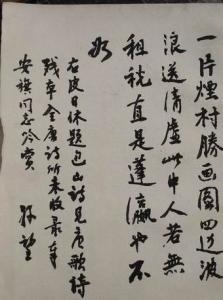 一片煙村勝画圖四邊波
浪送清虚此中人若無
租税直是蓬瀛也不
如
右皮日休題包山詩見唐歌詩
残卒全唐詩所未收录奉
安旗同志吟賞